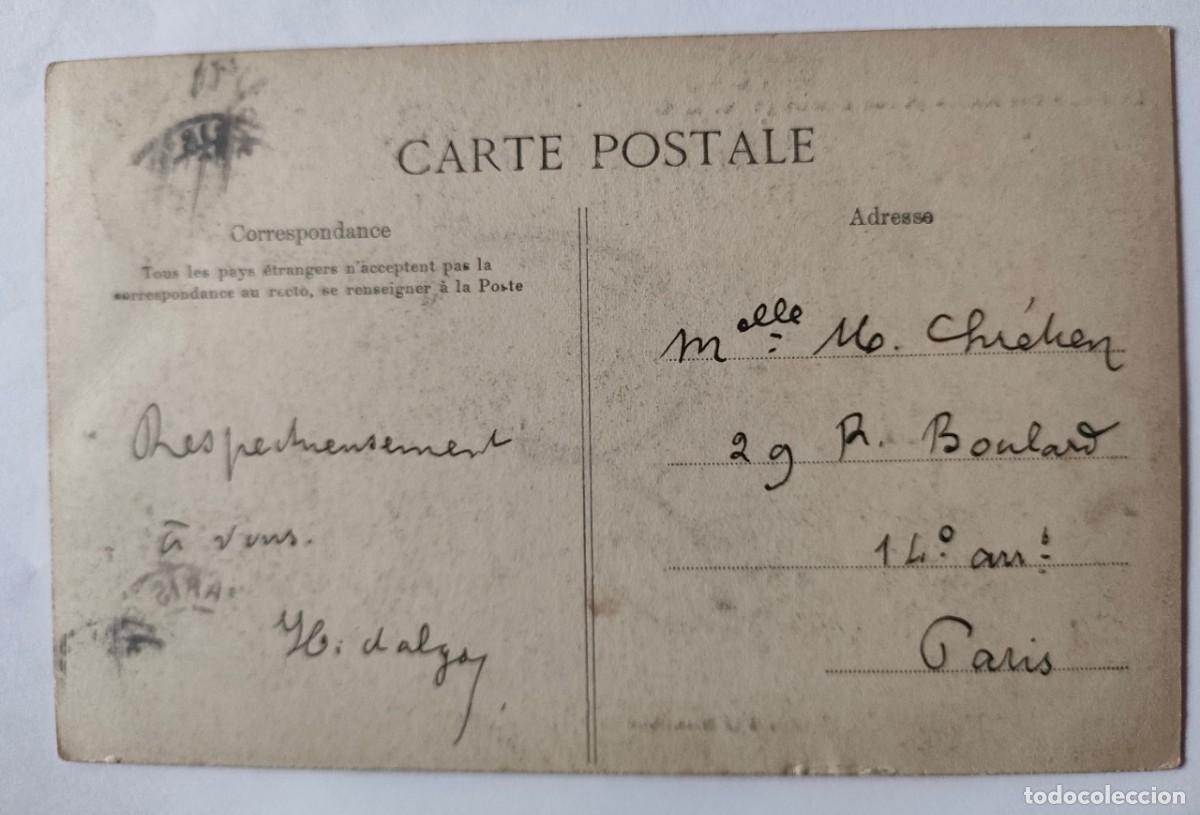 CARTE POSTALE
Correspondance
Tous les pays étrangers n'acceptent pas la
correspondance au recto, se renseigner à la Poste
Respectueusement
à vous.
H. dalgo
Adresse
Melle M. Chrétien
29 R. Boulard
14° arrt
Paris
PARIS
todocoleccion